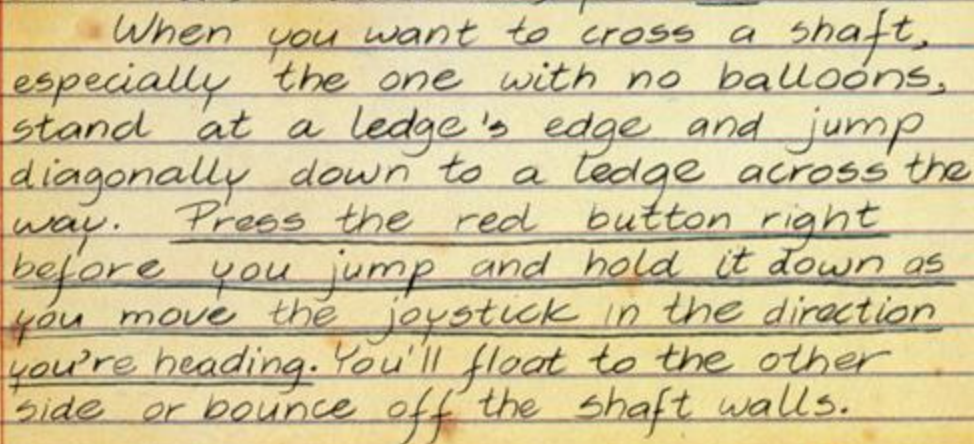 When you want to cross a shaft,
especially the one with no balloons,
stand at a ledge's edge and jump
diagonally down to a ledge across the
way. Press the red button right
before you jump and hold it down as
you move the joystick in the direction
you're heading. You'll float to the other
side or bounce off the shaft walls.